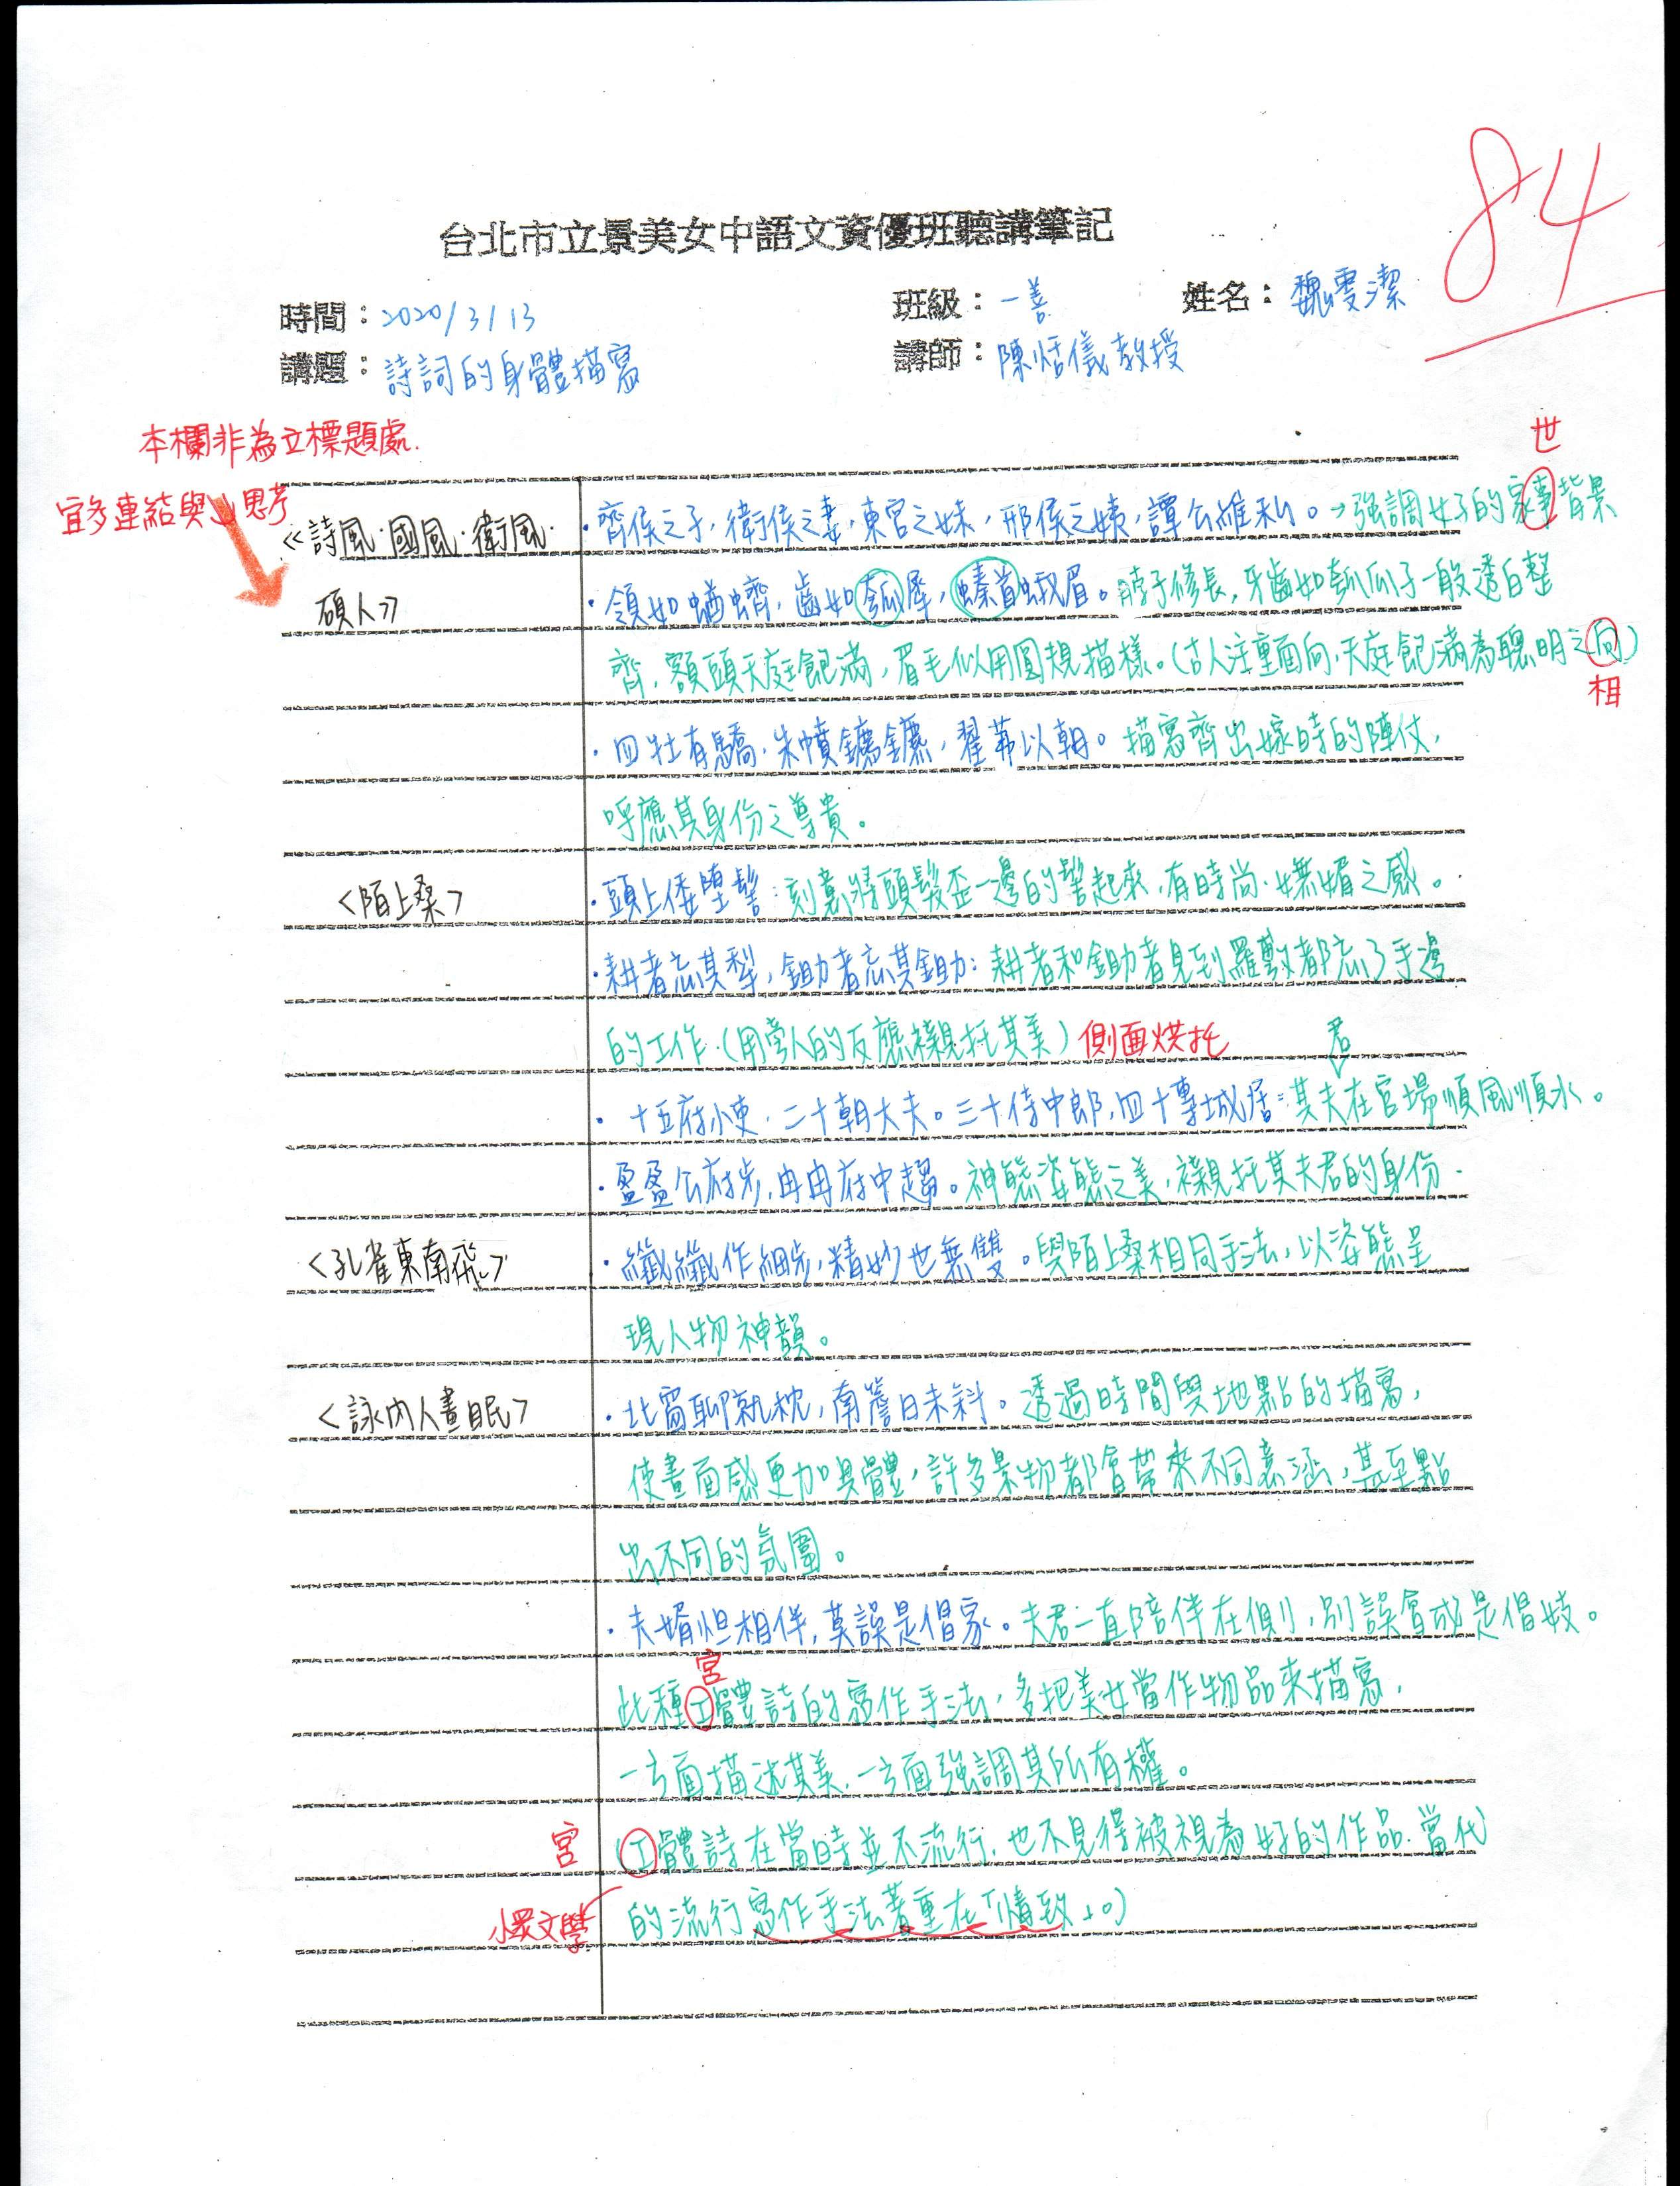 84
台北市立景美女中語文資優班聽講筆記
時間：2020/3/13
班級：一善
姓名：魏雯潔
講題：詩詞的身體描寫
講師：陳恬儀教授
本欄非為立標題處.
宜多連結與思考
世
《詩風·國風·衛風·
·齊侯之子，衛侯之妻，東宮之妹，邢侯之姨，譚公維私。→強調女子的家事背景
碩人》
·領如蝤蠐，齒如瓠犀，螓首蛾眉。脖子修長，牙齒如瓠瓜子一般透白整
齊，額頭天庭飽滿，眉毛似用圓規描樣。(古人注重面向，天庭飽滿為聰明之向)
相
·四牡有驕，朱幩鑣鑣，翟茀以朝。描寫齊出嫁時的陣仗，
呼應其身份之尊貴。
<陌上桑>
·頭上倭墮髻：刻意將頭髮歪一邊的髻起來，有時尚·嫵媚之感。
·耕者忘其犁，鋤者忘其鋤：耕者和鋤者見到羅敷都忘了手邊
的工作·(用旁人的反應襯托其美) 側面烘托
君
·十五府小吏，二十朝大夫。三十侍中郎，四十專城居：其夫在官場順風順水。
·盈盈公府步，冉冉府中趨。神態姿態之美，襯托其夫君的身份·
<孔雀東南飛>
·纖纖作細步，精妙世無雙。與陌上桑相同手法，以姿態呈
現人物神韻。
<詠內人晝眠>
·北窗聊就枕，南簷日未斜。透過時間與地點的描寫，
使畫面感更加具體，許多景物都會帶來不同意涵，甚至點
出不同的氛圍。
·夫婿恒相伴，莫誤是倡家。夫君一直陪伴在側，別誤會成是倡妓。
宮
此種工體詩的寫作手法，多把美女當作物品來描寫，
一方面描述其美，一方面強調其所有權。
宮
(工體詩在當時並不流行，也不見得被視為好的作品·當代
小眾文學
的流行寫作手法著重在「情致」。)